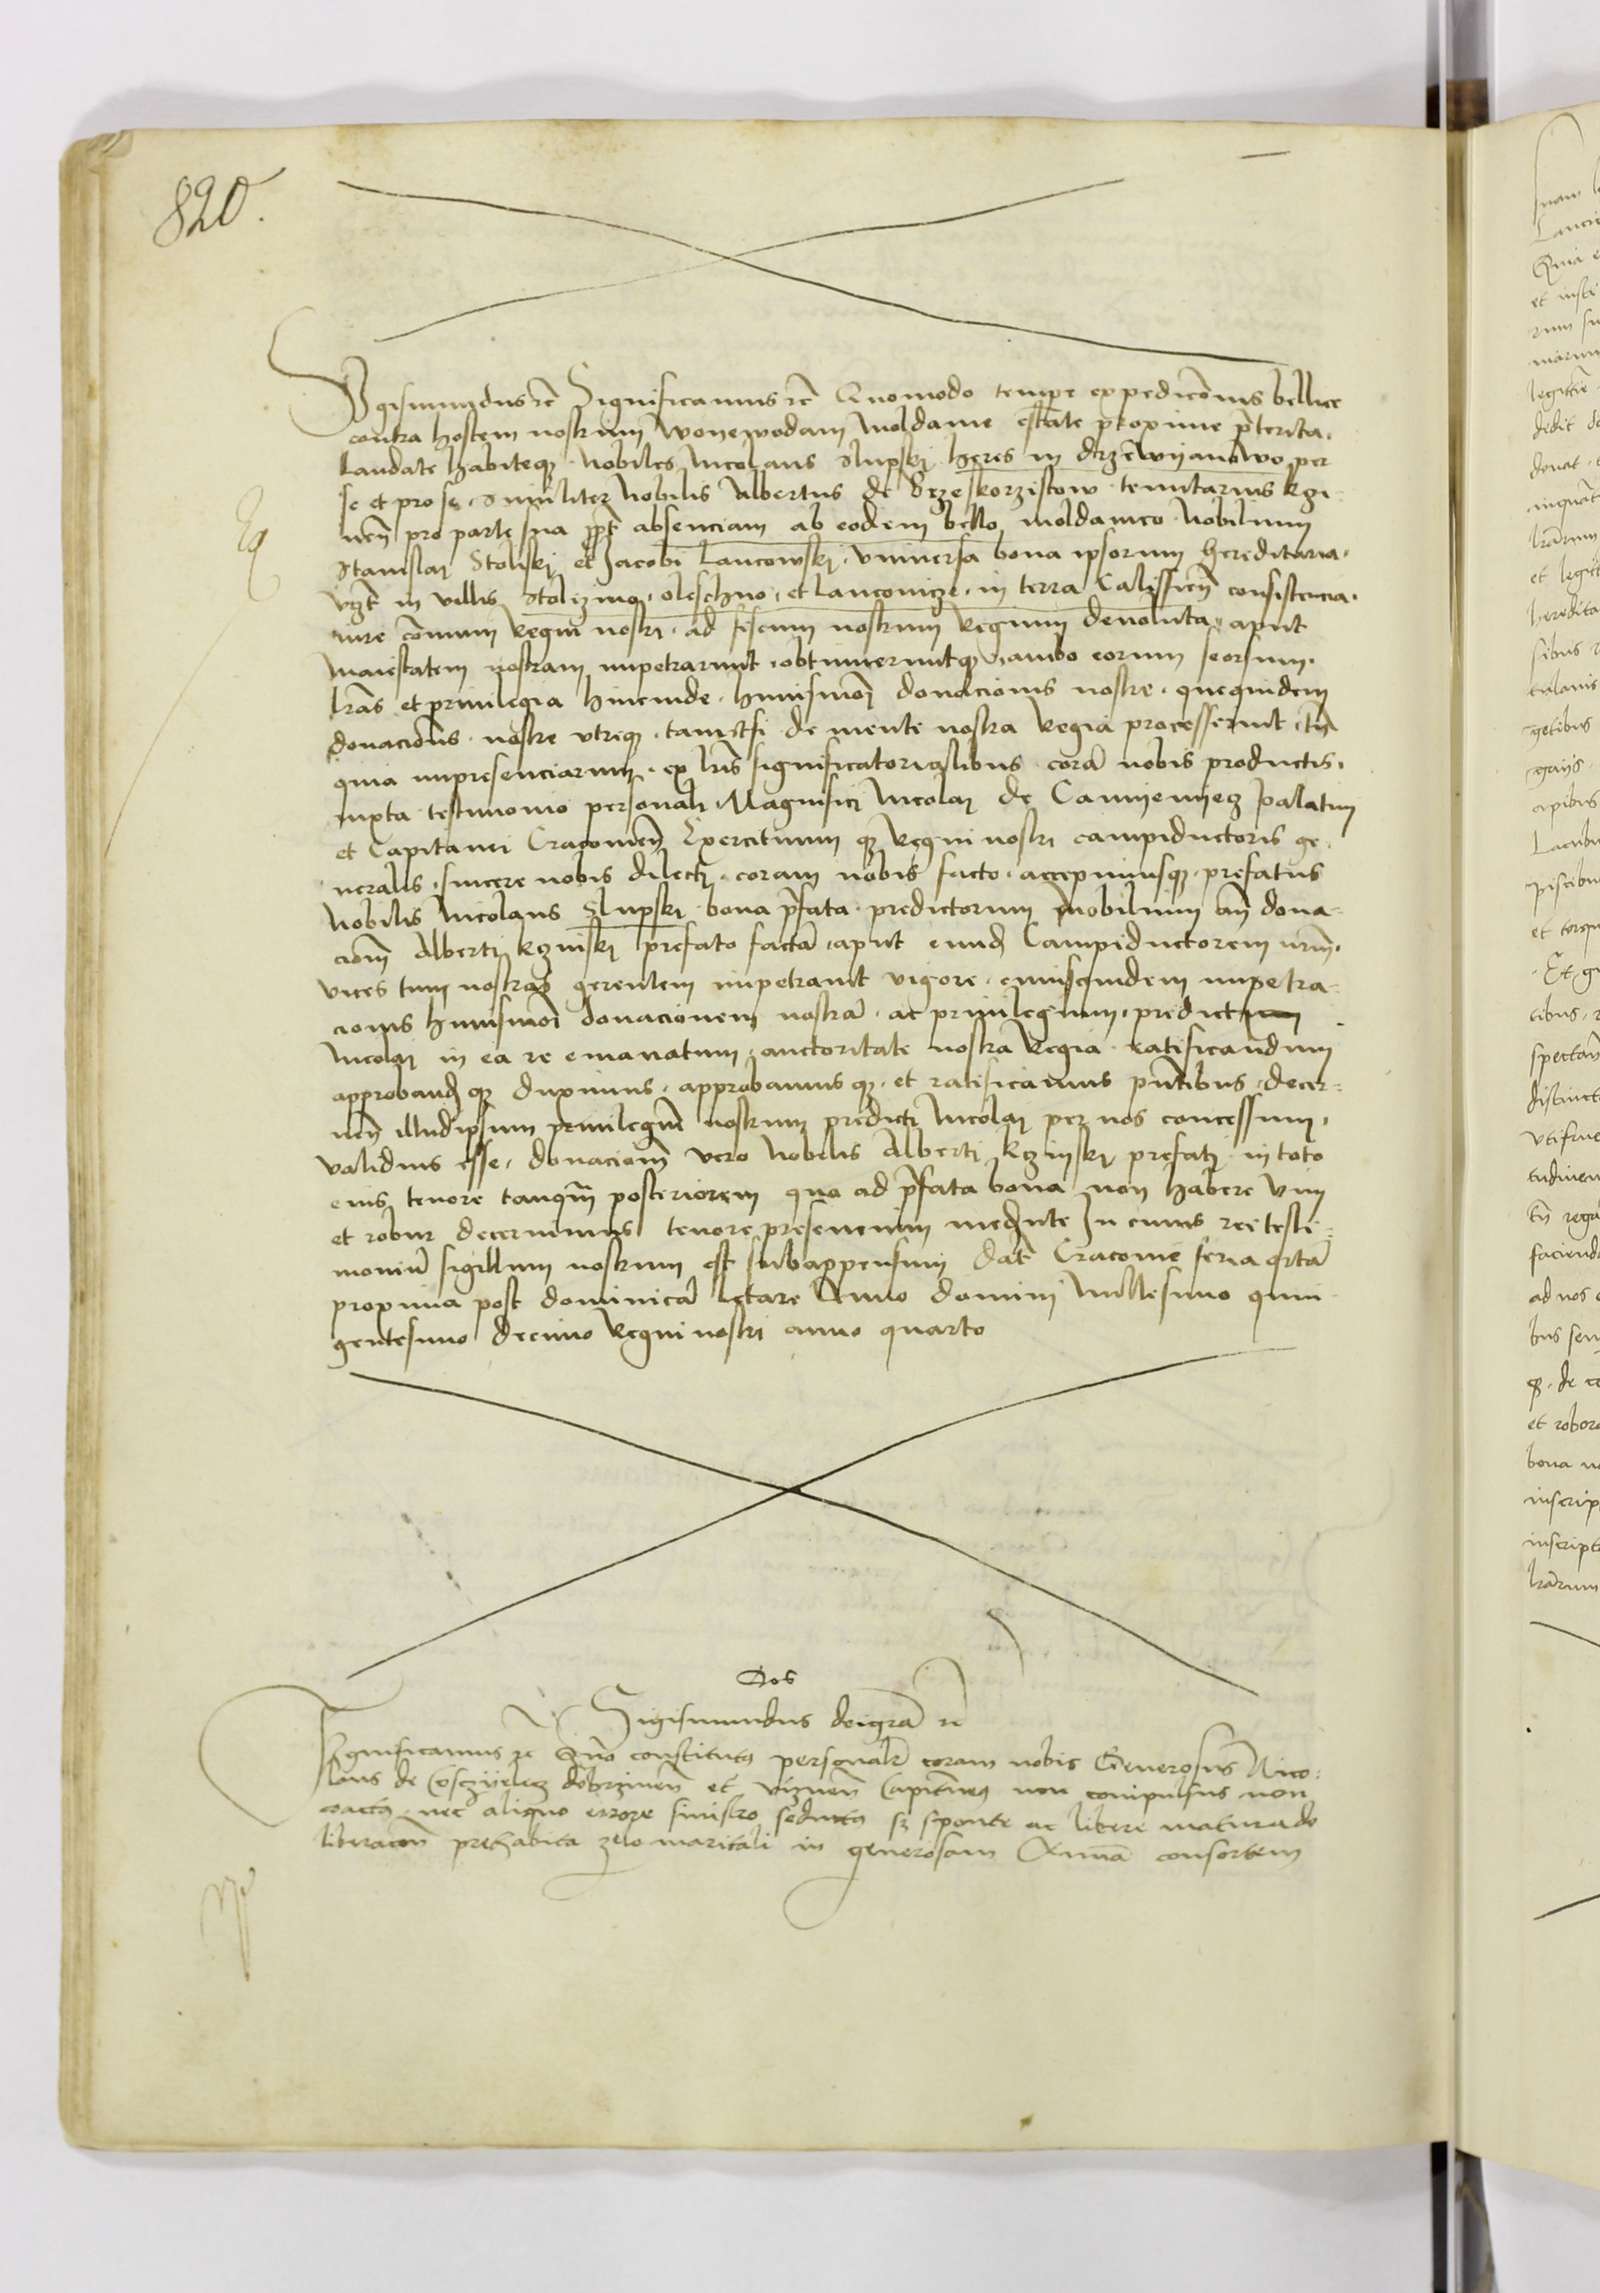 820.
Sigismundus etc Significamus etc Quomodo tempe expedicõnis bellice
contra hostem nostrum Woyewodam Moldavie estate proxime p̃terita.
Laudate habiteq₃ Nobiles Nicolaus Slupski heres in drzewyanowo per
se et pro se. Similiter Nobilis Albertus de tenutarius
pro parte sua ꝓpt̃ absenciam ab eodem bello moldavico Nobilium
Stanislai Stolski et Jacobi Lancowski. Universa bona ipsorum hereditaria.
vꝫt in villis oleschno. et Lanconicze. in terra Calissieñ consistencia.
iure cõmuni Regni nostri. ad fiscum nostrum Regium devoluta. aput
Maiestatem nostram impetrarunt. obtinueruntq₃. ambo eorum seorsum.
lrãs et privilegia hincinde. huiusmõi donacionis nostre. quequidem
donacionis nostre utreq₃. tametsi de mente nostra Regia processerunt. tñ
quia impresenciarum. ex lrĩs significatorialibus. corã nobis productis.
iuxta testimonio personali Magnifici Nicolai de Camyenyecz palatini
et Capitanei Cracovieñ Exercituum q₃ Regni nostri campiductoris ge-
neralis. sincere nobis dilecti. coram nobis facto. accepimusq₃. prefatus
Nobilis Nicolaus Slupski bona p̃fata predictorum Nobilium añ dona-
cionẽ Alberti prefato factã. aput eund̃ Campiductorem nrũm.
vices tum nostras gerentem impetravit vigore. cuiusquidem impetra-
cionis huiusmõi donacionem nostrã. ac privilegium. predict
Nicolai in ea re emanatum. auctoritate nostra Regia ratificandum
approband̃ q₃ duximus. approbamus q₃. et ratificamus pñtibus. decer-
neñ illudipsum privilegiũ nostrum predicti Nicolai per nos concessum.
validius esse. donacionẽ vero Nobilis Alberti prefati in toto
eius tenore tanq̃m posteriorem quo ad p̃fata bona non habere vim
et robur decernimus tenore presencium med̃nte In cuius rei testi-
moniũ sigillum nostrum est subappensum Dat̃ Cracovie feria
proxima post dominicã letare Anno domini Millesimo quin-
gentesimo decimo Regni nostri anno quarto
Dos
Sigismundus dei grã etc
Significamus etc Quo constitutus personalr̃ coram nobis Generosus Nico-
laus de dobrzineñ et Capitñeus non compulsus non
coactus nec aliquo errore sinistro seductus sꝫ sponte ac libere matura de
liberacoñ prehabita zelo maritali in generosam Annã consortem